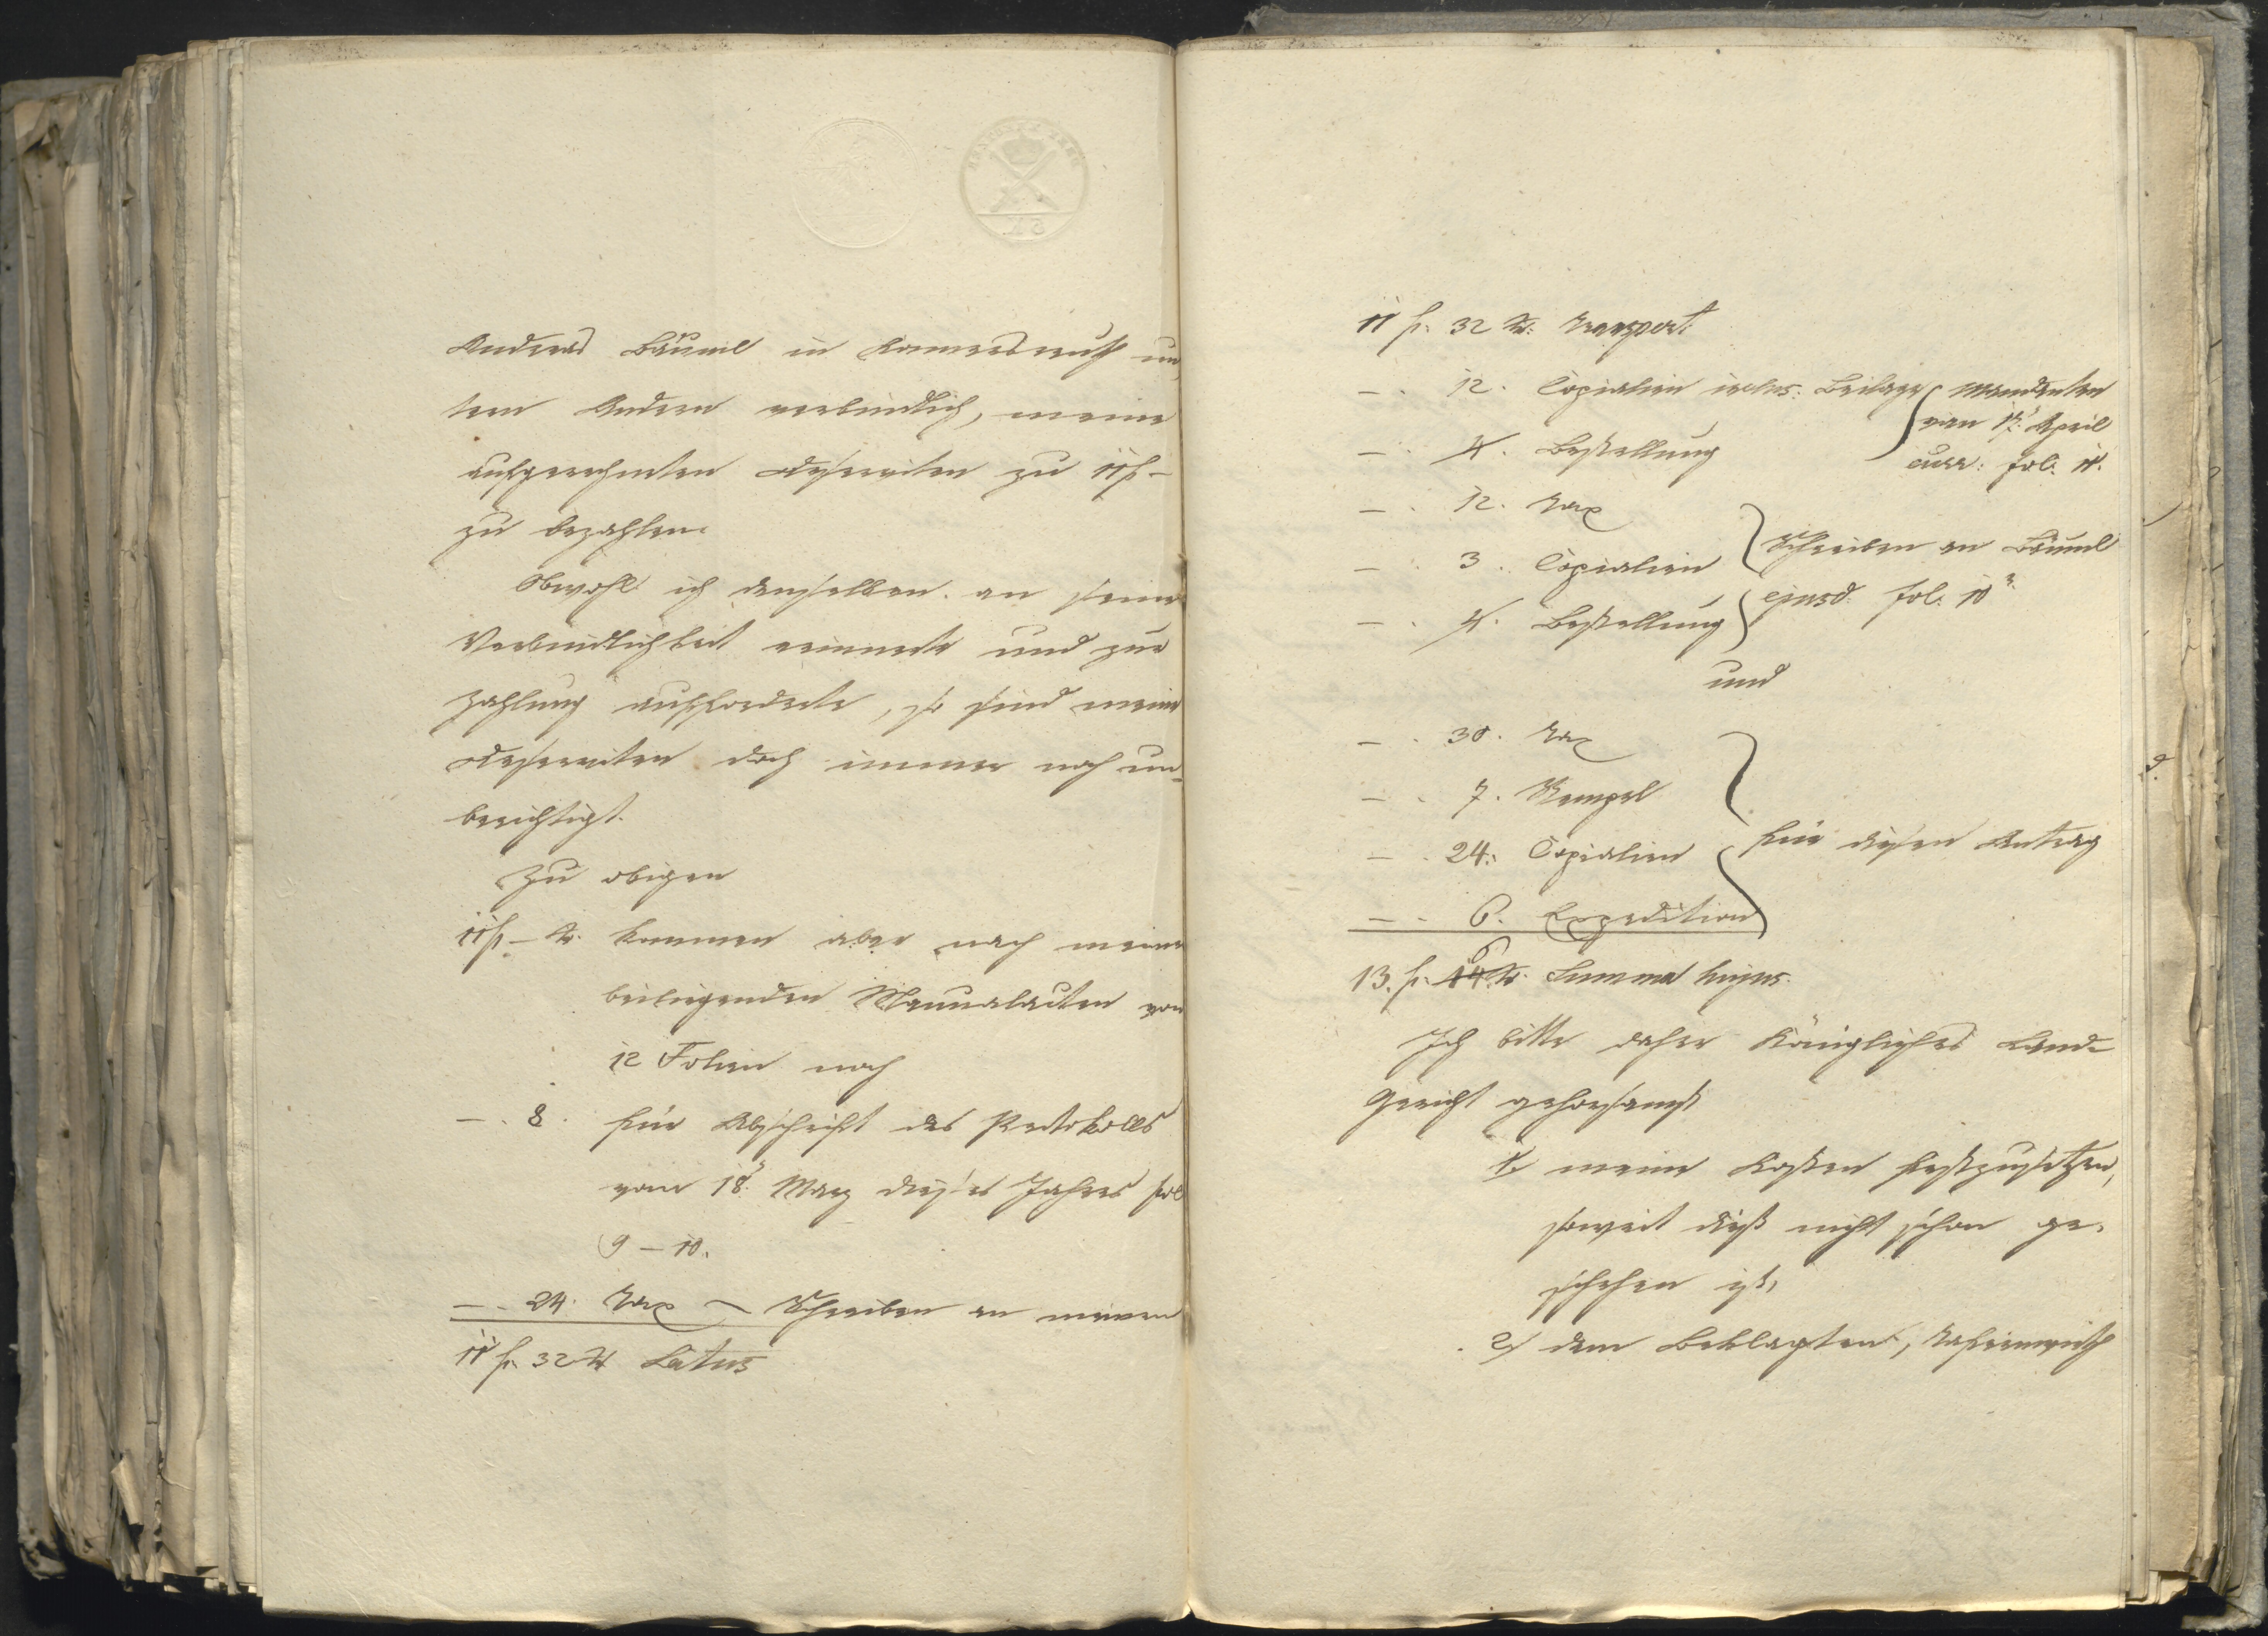 Andreas Bäuml in Konnersreuth un,
term Andern verbindlich, meine
aufgerechneten Deserviten zu 11 f –
zu bezahlen.
Obwohl ich denselben an seine
Verbindlichkeit erinnerte und zur
Zahlung aufforderte, so sind meine
Deserviten doch immer noch un-
berichtigt.
Zu obigen
11 f – x. kommen aber nach meinen
beiliegenden Manualacten von
12 Folien noch
– . 8. für Abschrift des Protokolls
vom 18. März dieses Jahres fol
9 – 10.
– . 24. Tax – Schreiben an meinen
11 f. 32 x Latus
11 f. 32 x. Transport.
– . 12. Copialien inclus: Beilage Mandanten
vom 17. April
– . 4. Bestellung curr: fol. 11.
– . 12. Tax
– . 3. Copialien Schreiben an Bäuml
– . 4. Bestellung ejusd. fol. 10
und
– . 30. Tax
– . 7. Stempel
– . 24. Copialien für diesen Antrag
– . 6. Expedition
13. f. 14 x. Summa hujus.
Ich bitte daher Königliches Land-
Gericht gehorsamst
1, meine Kosten festzusetzen,
soweit dieß nicht schon ge-
schehen ist,
2, dem Beklagten, Taferinwirth